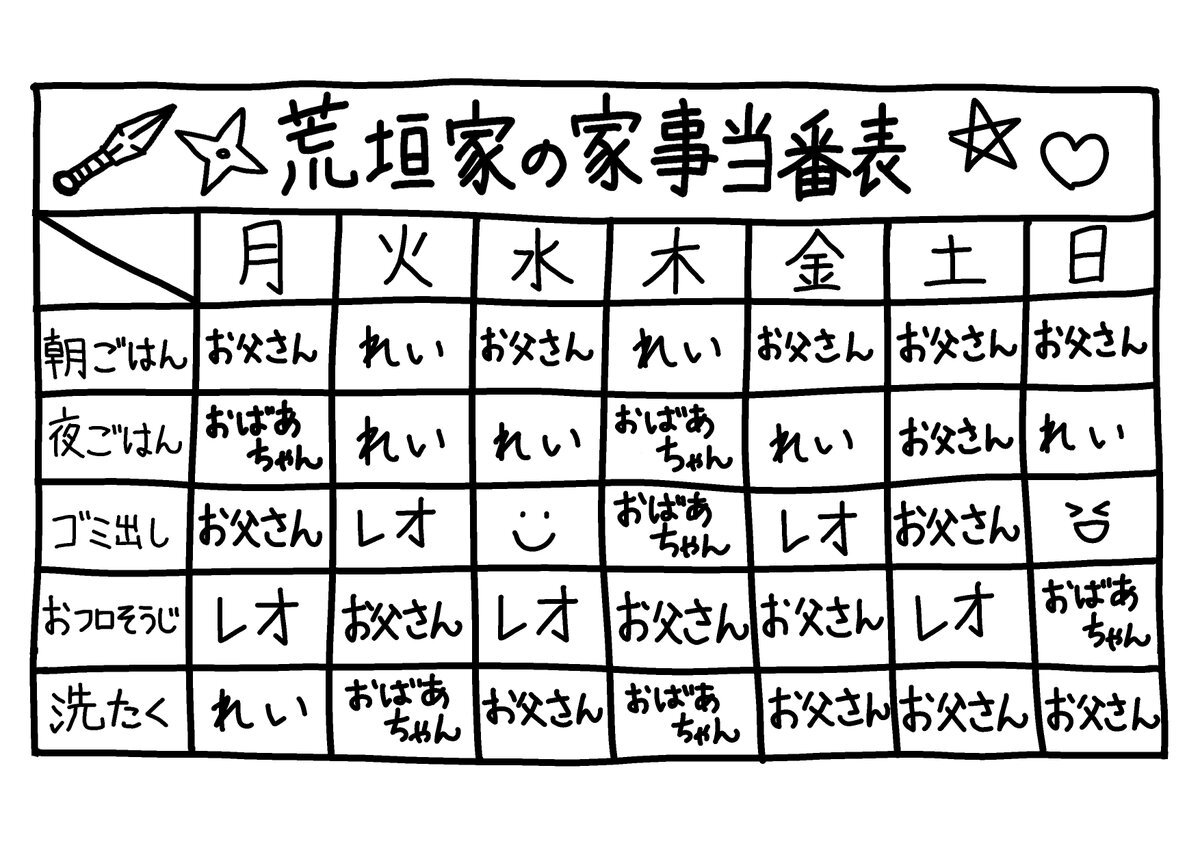 荒垣家の家事当番表
月 火 水 木 金 土 日
朝ごはん お父さん れい お父さん れい お父さん お父さん お父さん
夜ごはん おばあちゃん れい れい おばあちゃん れい お父さん れい
ゴミ出し お父さん レオ おばあちゃん レオ お父さん
おフロそうじ レオ お父さん レオ お父さん お父さん レオ おばあちゃん
洗たく れい おばあちゃん お父さん おばあちゃん お父さん お父さん お父さん